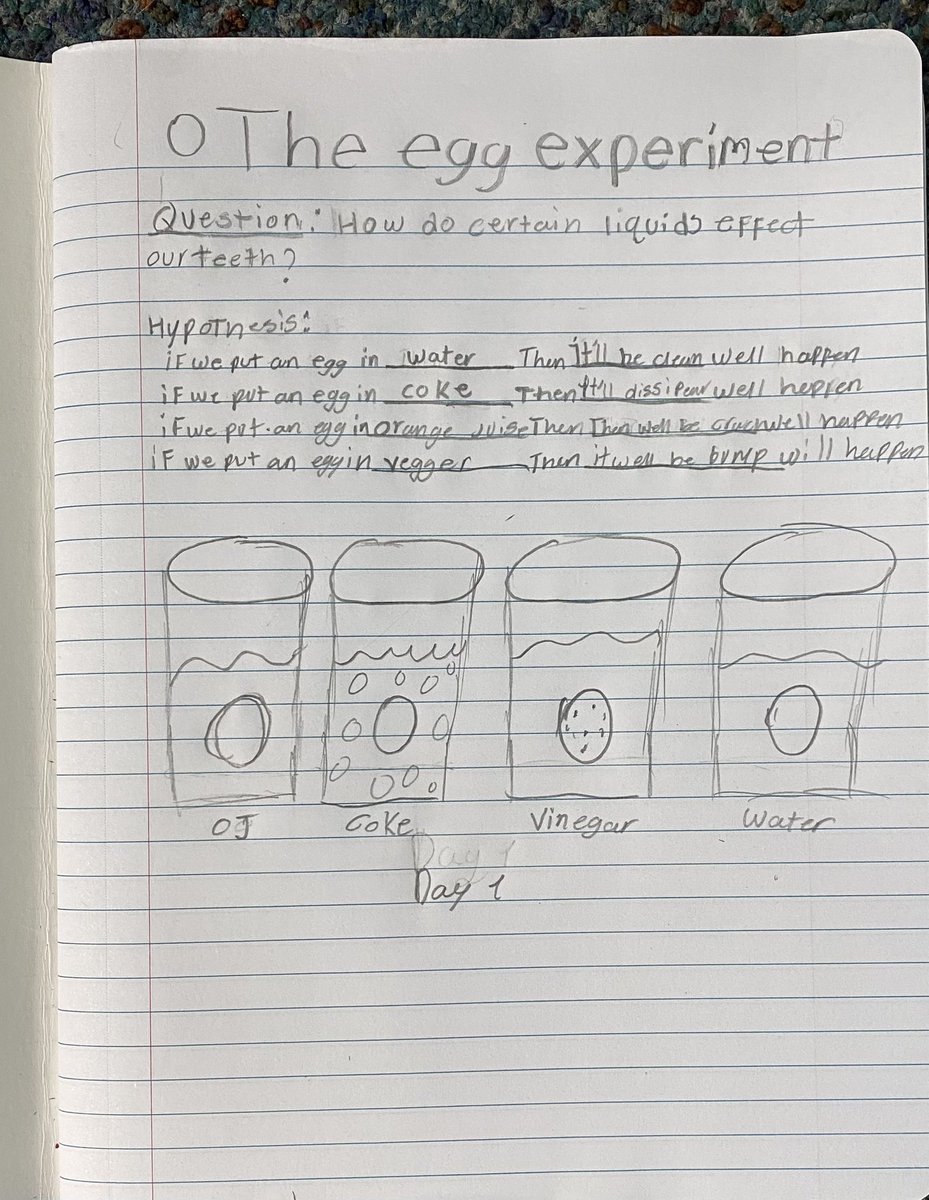 O The egg experiment
Question: How do certain liquids effect
our teeth?
Hypothesis:
if we put an egg in water Then It'll be clean well happen
if we put an egg in coke Then It'll dissipear well heppen
if we put an egg in orange Then Then well be well happen
if we put an egg in vegger Then it well be bump will happen
OJ Coke Vinegar Water
Day 1
Day 1